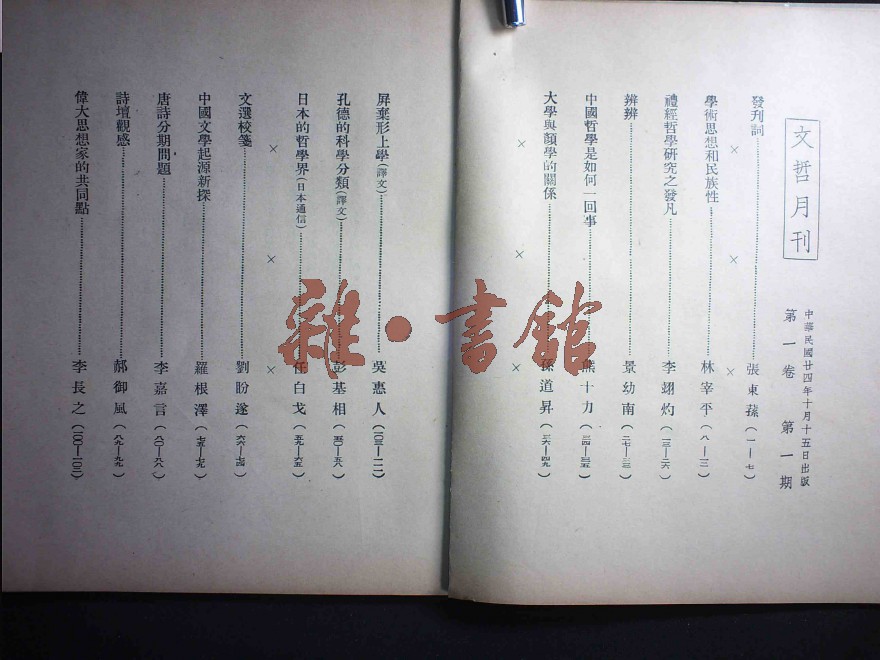 文哲月刊
中華民國廿四年十月十五日出版
第一卷 第一期
發刊詞 張東蓀 (一—七)
× × ×
學術思想和民族性 林宰平 (八—一二)
禮經哲學研究之發凡 李翊灼 (一三—二六)
辨辨 景幼南 (二七—三三)
中國哲學是如何一回事 熊十力
大學與顏學的關係 孫道昇
× × ×
屏棄形上學(譯文) 吳惠人
孔德的科學分類(譯文) 彭基相 (五〇—五八)
日本的哲學界(日本通信) 任白戈 (五九—六五)
× × ×
文選校箋 劉盼遂 (六六—七四)
中國文學起源新探 羅根澤 (七五—七九)
唐詩分期問題 李嘉言 (八〇—八八)
詩壇觀感 郝御風 (八九—九九)
偉大思想家的共同點 李長之 (一〇〇—一〇三)
雜·書館